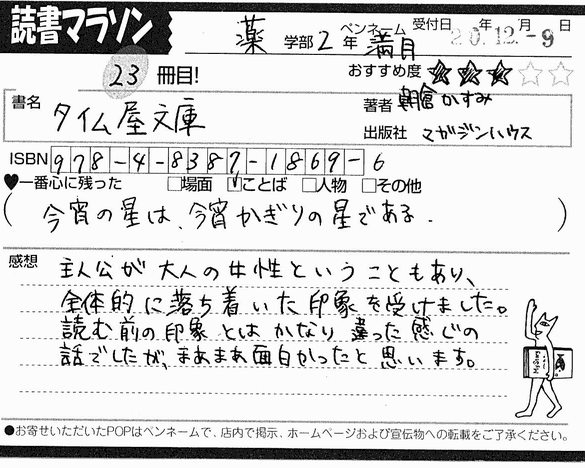 読書マラソン
薬 学部 2 年 ペンネーム 満月 受付日 年 月 日
20.12.-9
23 冊目! おすすめ度 ★★★☆☆
書名 タイム屋文庫 著者 朝倉かすみ
出版社 マガジンハウス
ISBN 978-4-8387-1869-6
♥一番心に残った □場面 ☑ことば □人物 □その他
(今宵の星は、今宵かぎりの星である.)
感想 主人公が大人の女性ということもあり、
全体的に落ち着いた印象を受けました。
読む前の印象とはかなり違った感じの
話でしたが、まあまあ面白かったと思います。
●お寄せいただいたPOPはペンネームで、店内で掲示、ホームページおよび宣伝物への転載をご了承ください。